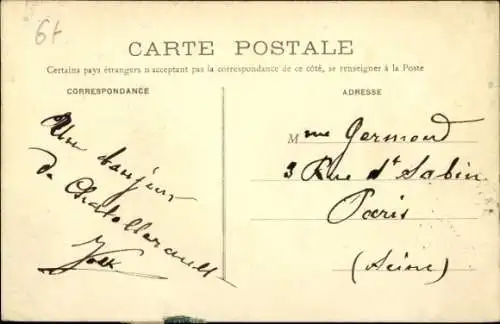 6f
CARTE POSTALE
Certains pays étrangers n'acceptant pas la correspondance de ce côté, se renseigner à la Poste
CORRESPONDANCE
ADRESSE
Un bonjour
de Chatellerault
Mme Germond
3 Rue St Sabin
Paris
(Seine)